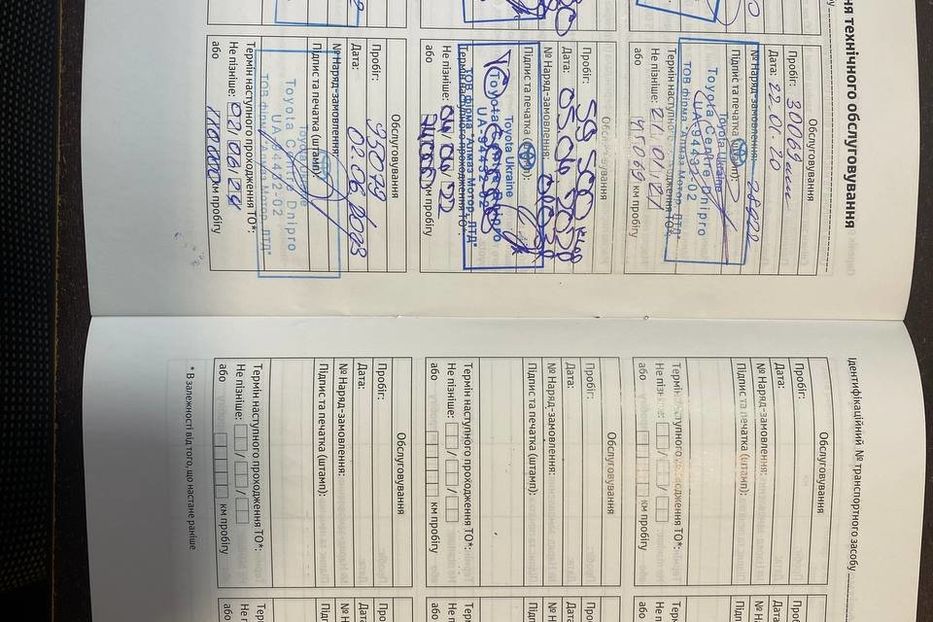 ня технічного обслуговування
Обслуговування
Пробіг: 30069 км
Дата: 22. 01. 20
№ Наряд-замовлення: 28922
Підпис та печатка (штамп):
Toyota Ukraine
Toyota Centre Dnipro
UA-94432-02
ТОВ фірма "Алмаз Мотор, ЛТД"
Термін наступного проходження ТО*:
Не пізніше: 21/01/21
або 45069 км пробігу
Обслуговування
Пробіг: 59 500
Дата: 05.04.
№ Наряд-замовлення:
Підпис та печатка (штамп):
Toyota Ukraine
Toyota Centre Dnipro
UA-94432-02
ТОВ фірма "Алмаз Мотор, ЛТД"
Термін наступного проходження ТО*:
Не пізніше: 04/04/22
або км пробігу
Обслуговування
Пробіг: 93079
Дата: 02.06.2023
№ Наряд-замовлення:
Підпис та печатка (штамп):
Toyota Ukraine
Toyota Centre Dnipro
UA-94432-02
ТОВ фірма "Алмаз Мотор, ЛТД"
Термін наступного проходження ТО*:
Не пізніше: 02/06/24
або км пробігу
Ідентифікаційний № транспортного засобу
Обслуговування
Пробіг:
Дата:
№ Наряд-замовлення:
Підпис та печатка (штамп):
Термін наступного проходження ТО*:
Не пізніше: / /
або км пробігу
Обслуговування
Пробіг:
Дата:
№ Наряд-замовлення:
Підпис та печатка (штамп):
Термін наступного проходження ТО*:
Не пізніше: / /
або км пробігу
Обслуговування
Пробіг:
Дата:
№ Наряд-замовлення:
Підпис та печатка (штамп):
Термін наступного проходження ТО*:
Не пізніше: / /
або км пробігу
* В залежності від того, що настане раніше
Проб
Дата:
№ На
Підп
Терм
Не п
або
Проб
Дата
№ На
Підп
Терм
Не п
або
Проб
Дата
№ На
Підп
Терм
Не п
або